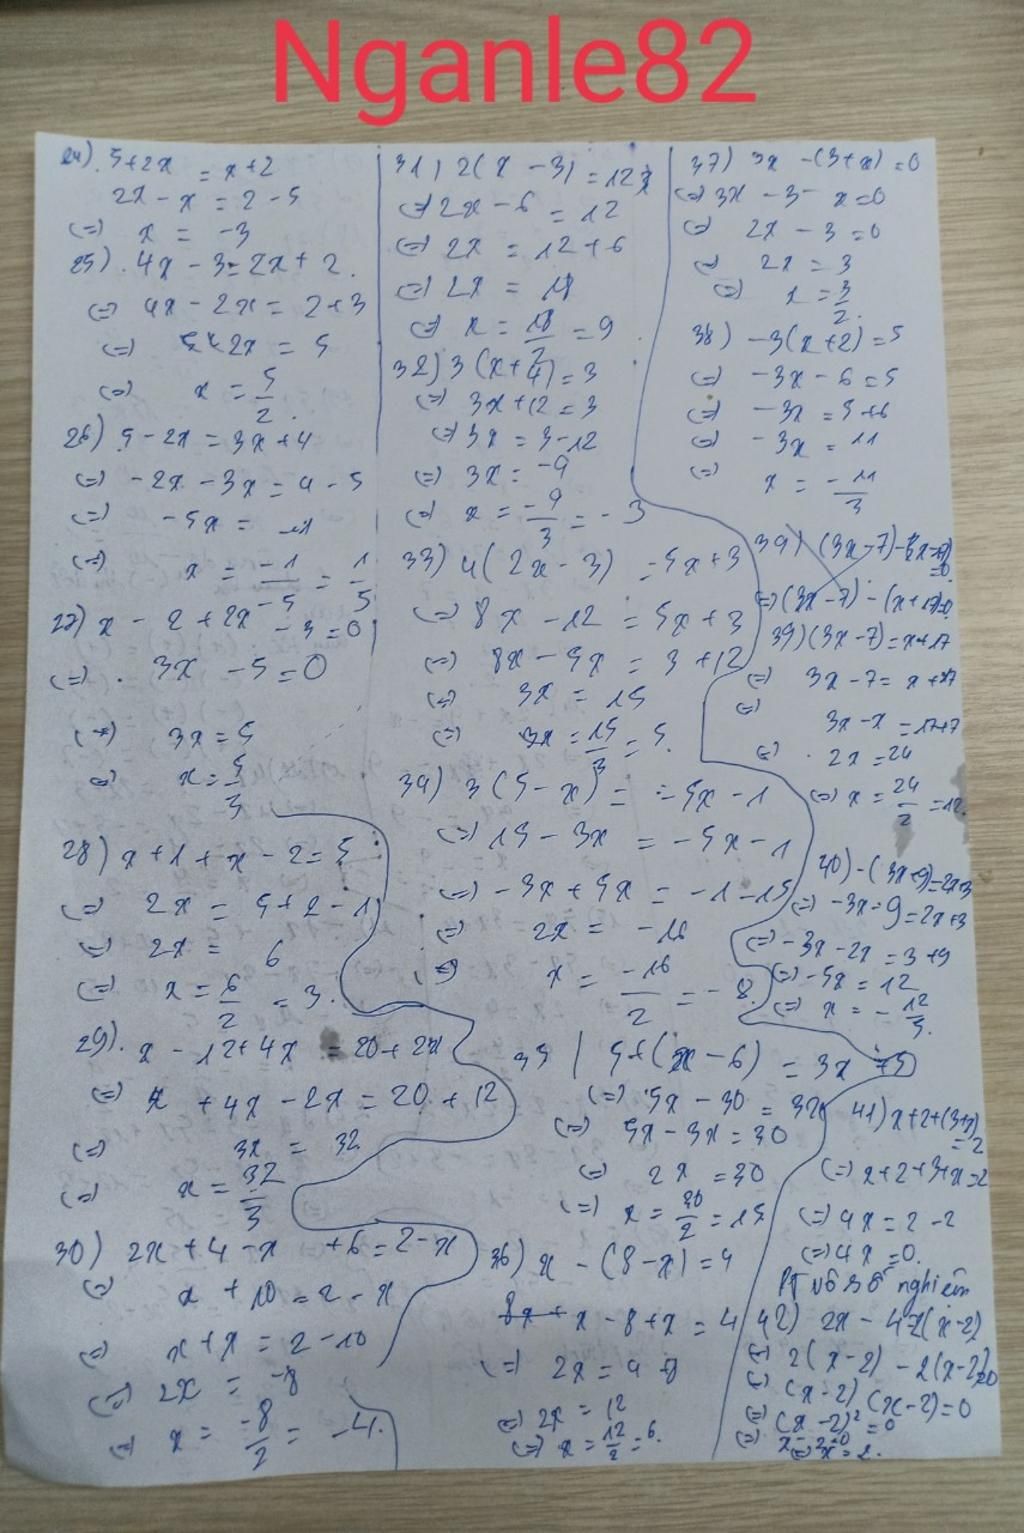 Nganle82
24) 5+2x = x+2
2x - x = 2 - 5
(=) x = -3
25) 4x - 3 = 2x + 2.
(=) 4x - 2x = 2+3
(=) 2x = 5
(=) x = 5/2.
26) 5 - 2x = 3x + 4
(=) -2x - 3x = 4 - 5
(=) -5x = -1
(=) x = -1/-5 = 1/5
27) x - 2 + 2x - 3 = 0
(=) 3x - 5 = 0
(=) 3x = 5
(=) x = 5/3
28) x + 1 + x - 2 = 5
(=) 2x = 5+2-1
(=) 2x = 6
(=) x = 6/2 = 3.
29) x - 12 + 4x = 20 + 2x
(=) x + 4x - 2x = 20 + 12
(=) 3x = 32
(=) x = 32/3
30) 2x + 4 - x + 6 = 2 - x
(=) x + 10 = 2 - x
(=) x + x = 2 - 10
(=) 2x = -8
(=) x = -8/2 = -4.
31) 2(x - 3) = 12
(=) 2x - 6 = 12
(=) 2x = 12 + 6
(=) 2x = 18
(=) x = 18/2 = 9
32) 3(x+4) = 3
(=) 3x + 12 = 3
(=) 3x = 3 - 12
(=) 3x = -9
(=) x = -9/3 = -3
33) 4(2x - 3) = 5x + 3
(=) 8x - 12 = 5x + 3
(=) 8x - 5x = 3 + 12
(=) 3x = 15
(=) 3x = 15/3 = 5.
34) 3(5 - x) = -5x - 1
(=) 15 - 3x = -5x - 1
(=) -3x + 5x = -1 - 15
(=) 2x = -16
(=) x = -16/2 = -8.
35) (x - 6) = 3x
(=) 5x - 30 = 3x
(=) 5x - 3x = 30
(=) 2x = 30
(=) x = 30/2 = 15
36) x - (8 - x) = 4
x - 8 + x = 4
(=) 2x = 4
(=) 2x = 12
(=) x = 12/2 = 6.
37) 3x - (3+x) = 0
(=) 3x - 3 - x = 0
(=) 2x - 3 = 0
(=) 2x = 3
(=) x = 3/2.
38) -3(x+2) = 5
(=) -3x - 6 = 5
(=) -3x = 5+6
(=) -3x = 11
(=) x = -11/3
39) (3x-7)
(=) (3x-7) - (x+17) = 0
39) (3x-7) = x+17
(=) 3x - 7 = x + 17
(=) 3x - x = 17+7
(=) 2x = 24
(=) x = 24/2 = 12.
40) -(3x+9) = 2x+3
(=) -3x - 9 = 2x + 3
(=) -3x - 2x = 3 + 9
(=) -5x = 12
(=) x = -12/5.
41) x+2+(3+x) = 2
(=) x+2+3+x = 2
(=) 4x = 2 - 2
(=) 4x = 0.
PT vô số nghiệm
42) 2x - 4 = 2(x-2)
(=) 2(x-2) - 2(x-2) = 0
(=) (x-2)(x-2) = 0
(=) (x-2)² = 0
(=) x - 2 = 0
(=) x = 2.